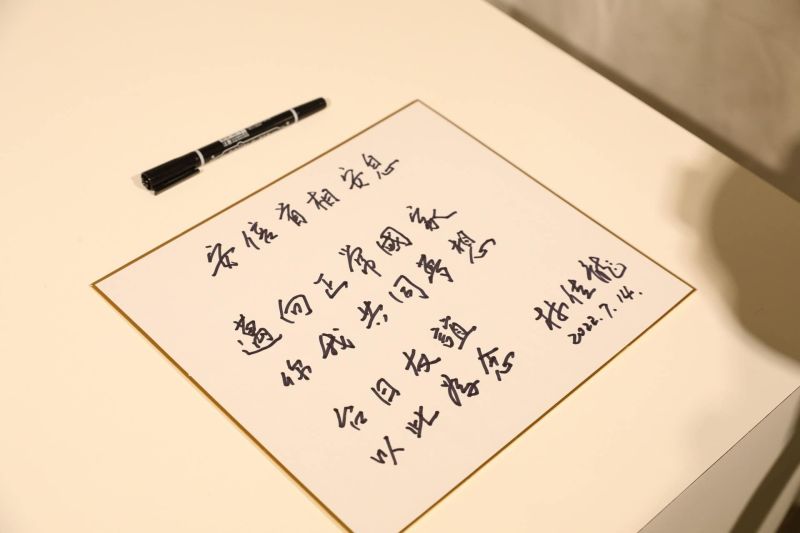 安倍首相安息
邁向正常國家
你我共同夢想
台日友誼
以此為念
林佳龍
2022.7.14.